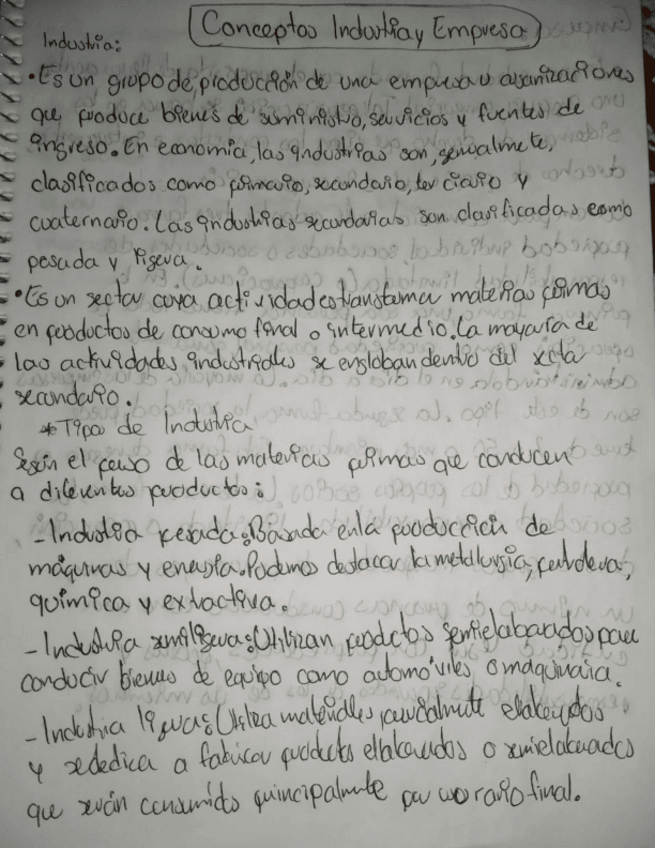 Conceptos Industria y Empresa
Industria:
• Es un grupo de producción de una empresa u organizaciones
que produce bienes de suministro, servicios y fuentes de
ingreso. En economía, las industrias son, generalmente,
clasificados como primario, secundario, terciario y
cuaternario. Las industrias secundarias son clasificadas como
pesada y ligera.
• Es un sector cuya actividades transforman materias primas
en productos de consumo final o intermedio. La mayoría de
las actividades industriales se engloban dentro del sector
secundario.
* Tipos de Industria
Según el peso de las materias primas que conducen
a diferentes productos:
- Industria pesada: Basada en la producción de
máquinas y energía. Podemos destacar la metalurgia, petrolera,
química y extractiva.
- Industria semiligeras: Utilizan productos semielaborados para
conducir bienes de equipo como automóviles o maquinaria.
- Industria ligeras: Utiliza materiales parcialmente elaborados
y se dedica a fabricar productos elaborados o semielaborados
que serán consumido principalmente por usuario final.